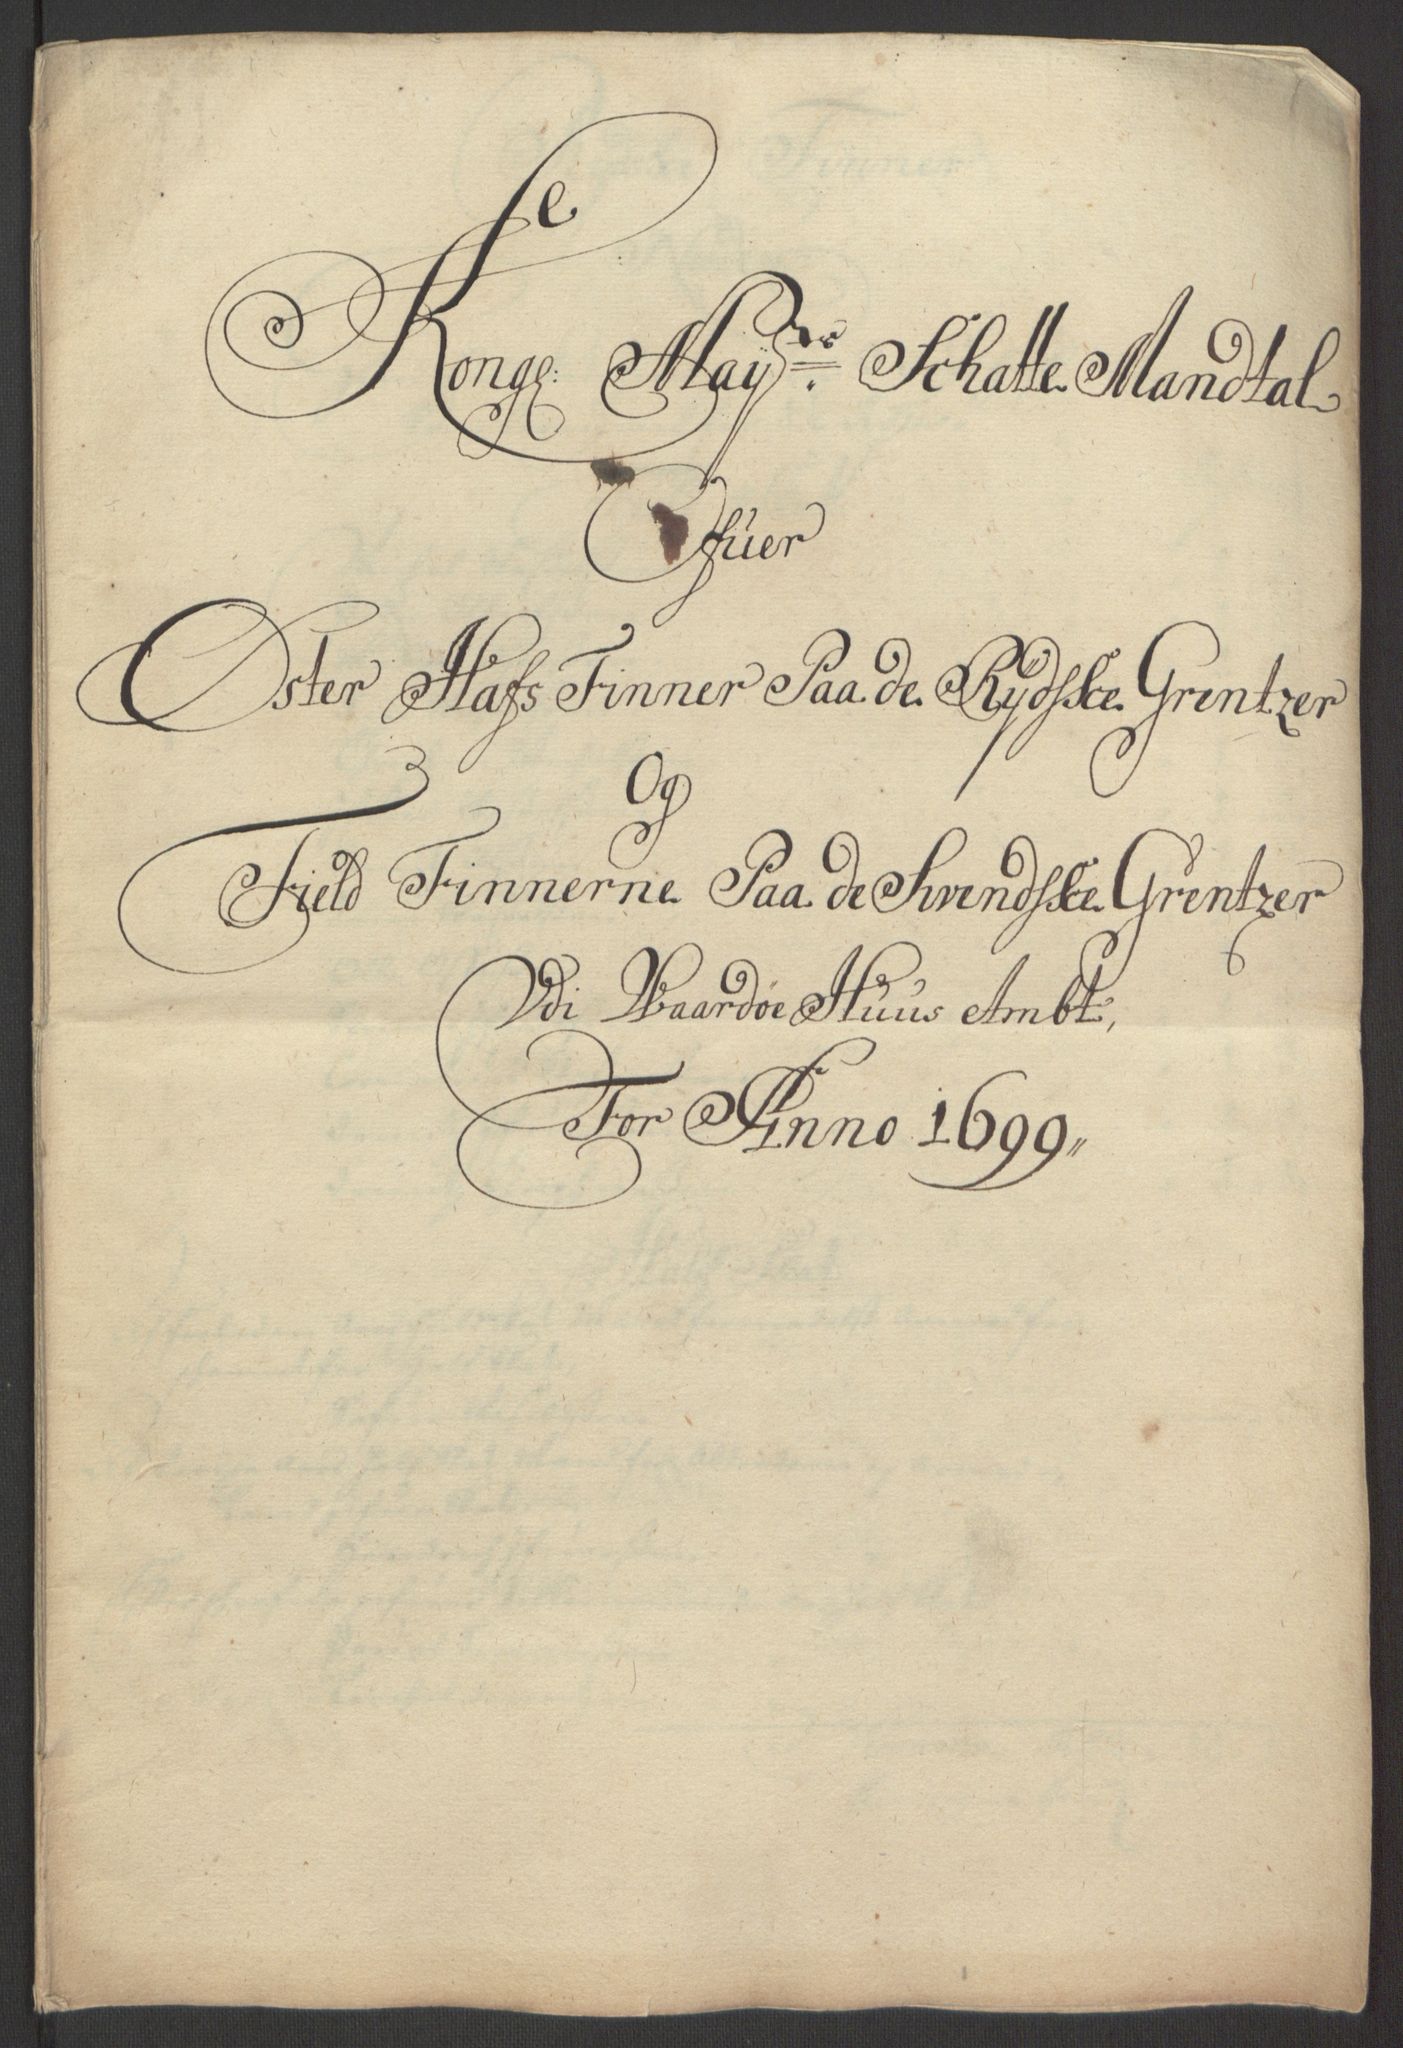 Kongel: Mayᵗˢ Schatte Mandtal
Ofuer
Oster Hafs Finner Paa de Rydsske Grentzer
Og
Field Finnerne Paa de Svendsske Grentzer
Vdi Waardøe Huus Ambt,
For Anno 1699,,